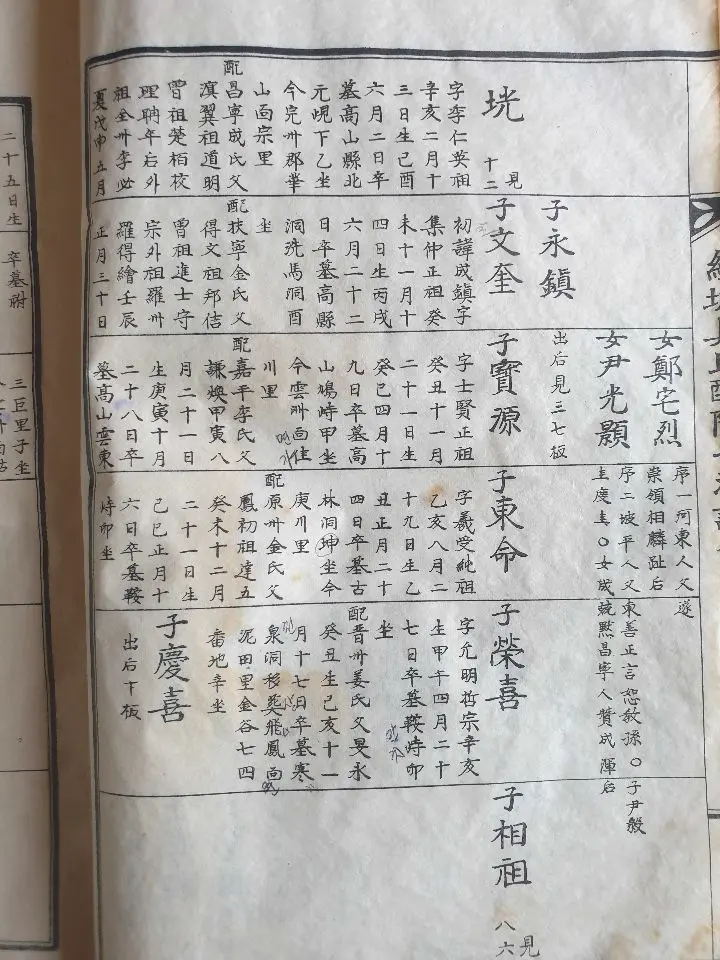 珖
見
十二
字季仁英祖
辛亥二月十
三日生己酉
六月二日卒
墓高山縣北
元峴下乙坐
今完州郡華
山面宗里
配昌寧成氏父
漢翼祖道明
曾祖楚栢校
理聃年后外
祖全州李必
夏戊申五月
子永鎭
子文奎
初諱成鎭字
集仲正祖癸
未十一月十
四日生丙戌
六月二十二
日卒墓高縣
洞洗馬洞酉
坐
配扶寧金氏父
得文祖邦佶
曾祖進士守
宗外祖羅州
羅得繪壬辰
正月三十日
女鄭宅烈
女尹光顥
出后見三七板
子寶源
字士賢正祖
癸丑十一月
二十一日生
癸巳四月十
九日卒墓高
山鳩峙甲坐
今雲州面佳
川里
配嘉平李氏父
謙煥甲寅八
月二十一日
生庚寅十月
二十八日卒
墓高山雲東
序一河東人父
崇領相麟趾后
序二坡平人父
圭慶圭〇女咸
子東命
字羲受純祖
乙亥八月二
十九日生乙
丑正月二十
四日卒墓古
林洞坤坐今
庚川里
配原州金氏父
鳳初祖達五
癸未十二月
二十一日生
己巳正月十
六日卒墓鞍
峙卯坐
遂
東善正言恕敎孫〇
兢黙昌寧人贊成渾后
子榮喜
字允明哲宗辛亥
生甲午四月二十
七日卒墓鞍峙卯
坐
配晋州姜氏父旻永
癸丑生己亥十一
月十七日卒墓寒
泉洞移葬飛鳳面
泥田里金谷七四
番地辛坐
子慶喜
出后下板
子尹毅
子相祖
見
八六
二十五日生
卒墓附
三巨里子坐